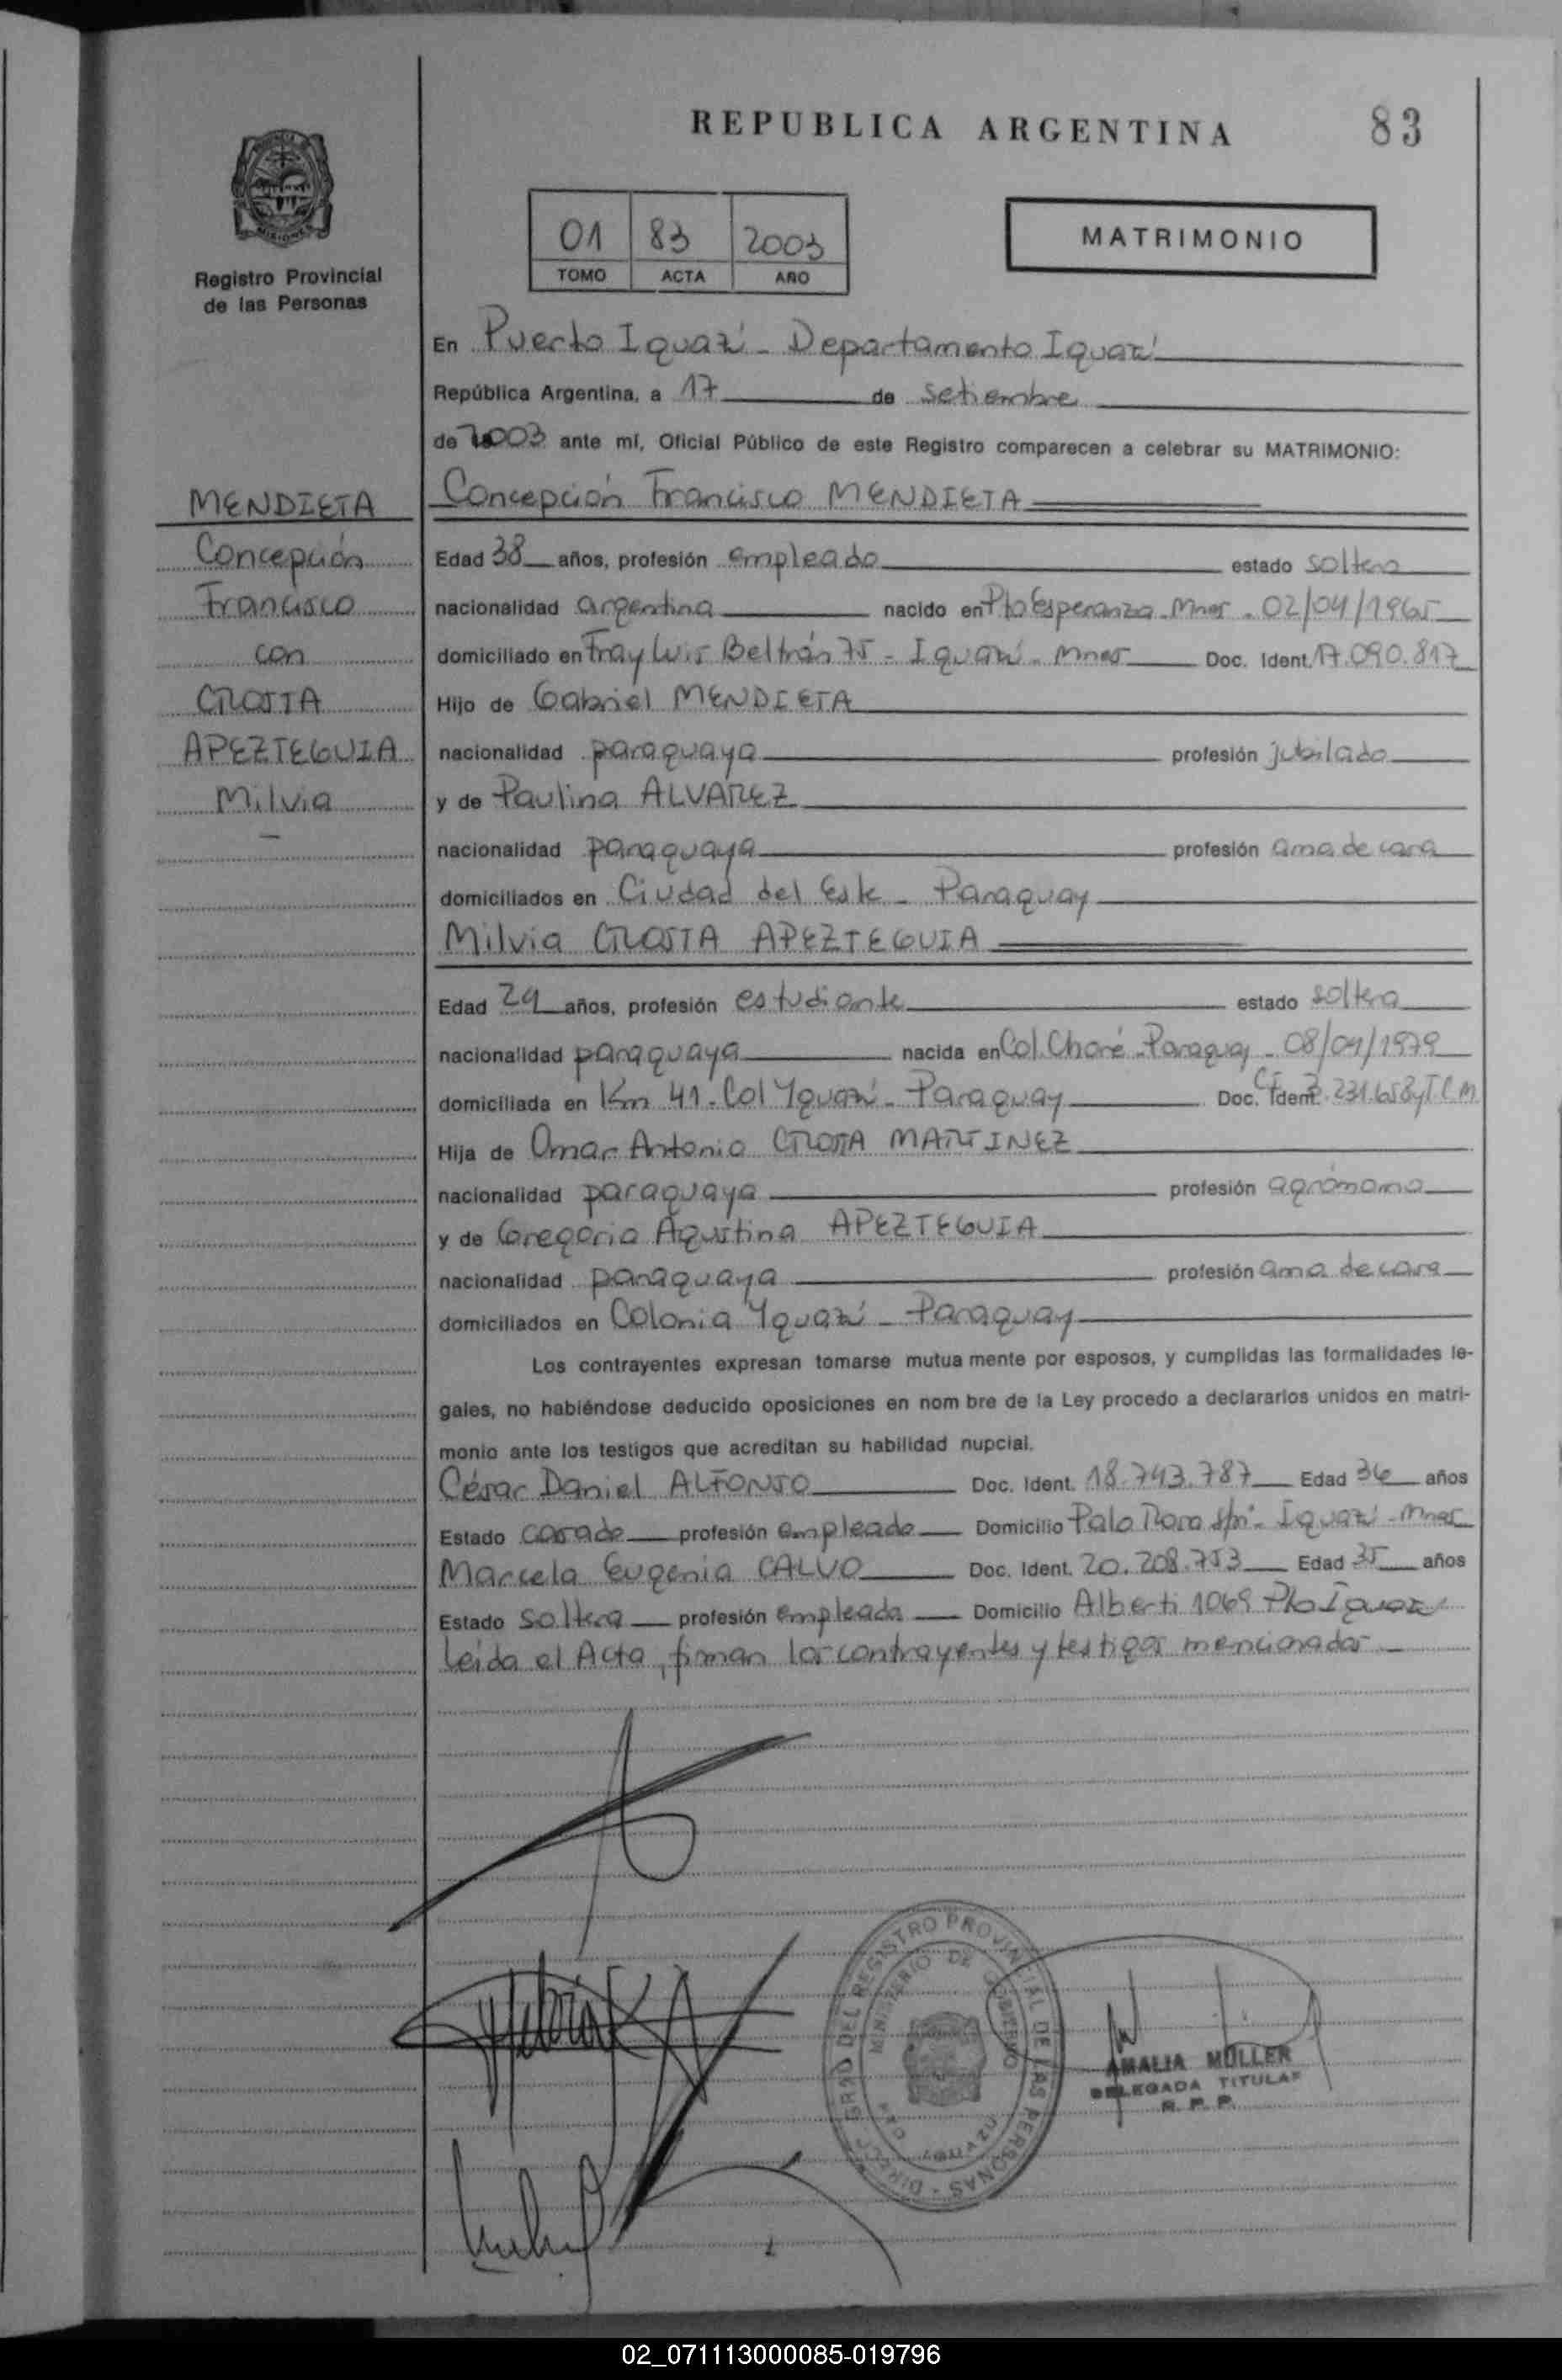 REPUBLICA ARGENTINA
83
MISIONES
Registro Provincial
de las Personas
01 83 2003
TOMO ACTA AÑO
MATRIMONIO
En Puerto Iguazú - Departamento Iguazú
República Argentina, a 17 de setiembre
de 2003 ante mí, Oficial Público de este Registro comparecen a celebrar su MATRIMONIO:
MENDIETA
Concepción
Francisco
con
CROSTA
APEZTEGUIA
Milvia
Concepción Francisco MENDIETA
Edad 38 años, profesión empleado estado soltero
nacionalidad argentina nacido en Pto Esperanza - Mnes - 02/04/1965
domiciliado en Fray Luis Beltrán 75 - Iguazú - Mnes Doc. Ident. 17.090.817
Hijo de Gabriel MENDIETA
nacionalidad paraguaya profesión jubilado
y de Paulina ALVAREZ
nacionalidad paraguaya profesión ama de casa
domiciliados en Ciudad del Este - Paraguay
Milvia CROSTA APEZTEGUIA
Edad 24 años, profesión estudiante estado soltera
nacionalidad paraguaya nacida en Col. Choré - Paraguay - 08/04/1979
domiciliada en Km 41 - Col Yguazú - Paraguay Doc. Ident.
Hija de Omar Antonio CROSTA MARTINEZ
nacionalidad paraguaya profesión agrónomo
y de Gregoria Agustina APEZTEGUIA
nacionalidad paraguaya profesión ama de casa
domiciliados en Colonia Yguazú - Paraguay
Los contrayentes expresan tomarse mutua mente por esposos, y cumplidas las formalidades le-
gales, no habiéndose deducido oposiciones en nom bre de la Ley procedo a declararlos unidos en matri-
monio ante los testigos que acreditan su habilidad nupcial.
César Daniel ALFONSO Doc. Ident. 18.743.787 Edad 36 años
Estado casado profesión empleado Domicilio Palo Rosa s/nº - Iguazú - Mnes
Marcela Eugenia CALVO Doc. Ident. 20.208.753 Edad 35 años
Estado soltera profesión empleada Domicilio Alberti 1069 Pto Iguazú
Leída el Acta, firman los contrayentes y testigos mencionados
DIRECC. GRAL DEL REGISTRO PROVINCIAL DE LAS PERSONAS
MINISTERIO DE GOBIERNO
AMALIA MULLER
DELEGADA TITULAR
R. P. P.
02_071113000085-019796